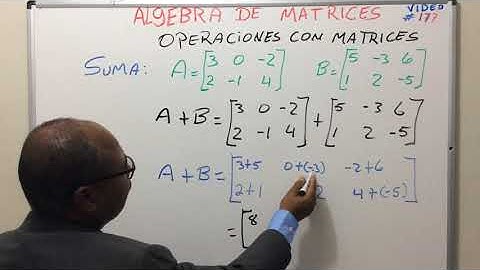 ALGEBRA DE MATRICES
VIDEO
# 177
OPERACIONES CON MATRICES
SUMA: A = [3 0 -2 B = [5 -3 6
2 -1 4] 1 2 -5]
A + B = [3 0 -2 + [5 -3 6
2 -1 4] 1 2 -5]
A + B = [3+5 0+(-3) -2+6
2+1 2 4+(-5)]
= [8